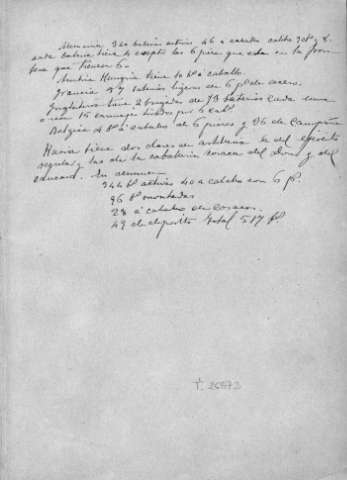 Alemania 340 baterias activas 46 a caballo calibre 7 u 8.
cada bateria tiene 4 excepto las 6 piezas que estan en la fron
tera que tienen 6.
Austria Hungria tiene 16 bª á caballo.
Francia 57 baterias ligeras de 6 pª de acero.
Inglaterra tiene 2 brigadas de 13 baterias cada una
con 15 carruajes tirados por 6 cab.
Belgica 4 Bª á caballo de 6 piezas y 36 de Campaña
Rusia tiene dos clases de artilleria la del ejército
regular y las de la caballeria cosaca del Don y del
caucaso. En resumen
344 bª activas 40 a caballo con 6 pª.
96 bª montadas
28 á caballo de cosacos.
49 de deposito Total 517 bª
T. 26573